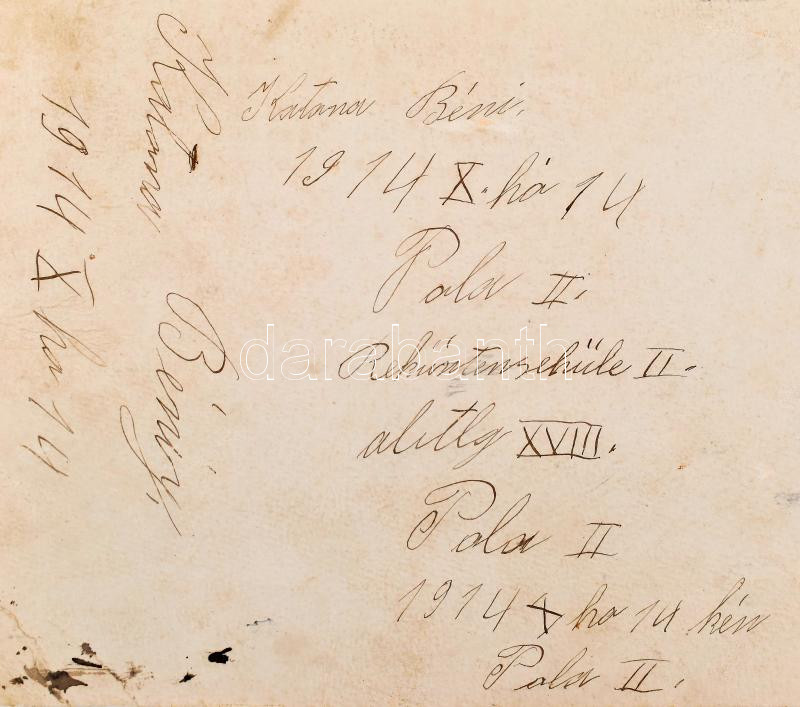 Katona Béni.
1914 X. hó 14
Pola II.
Rekůntenschůle II.
alitlg XVIII.
Pola II
1914 X ho 14 kén
Pola II.
Katona Béniz,
1914 X ho 14
darabanth